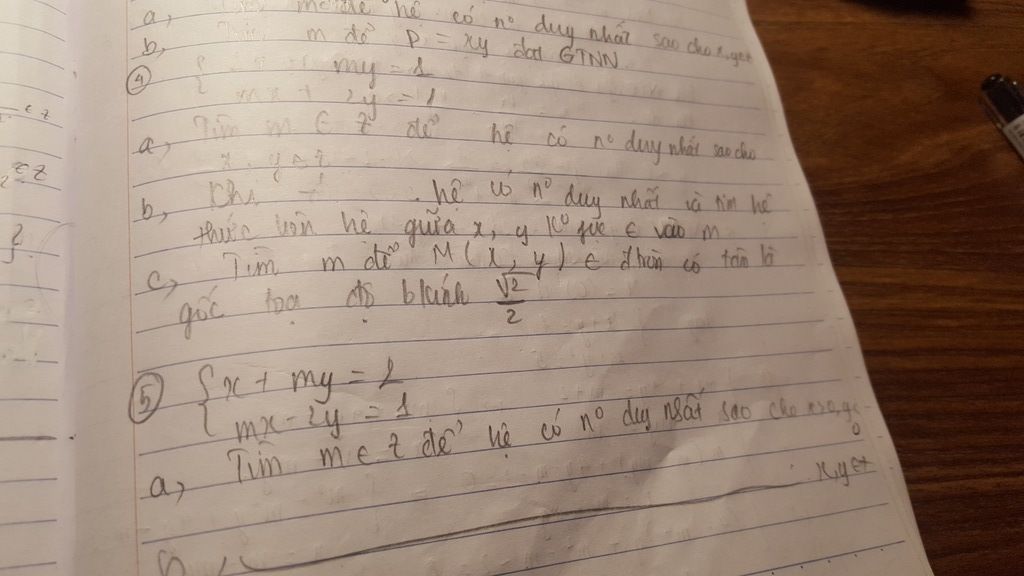 a, để hệ có nº duy nhất sao cho x,y∈z
b, m để P = xy đạt GTNN
④ { my = 1
mx + 2y = 1
a, Tìm m ∈ Z để hệ có nº duy nhất sao cho
x, y ∈ z
b, Khi hệ có nº duy nhất và tìm hệ
thức liên hệ giữa x, y Kº ∈ vào m
c, Tìm m để M(x, y) ∈ có tâm là
gốc toạ độ bkính √2/2
⑤ { x + my = 2
mx - 2y = 1
a, Tìm m ∈ z để hệ có nº duy nhất sao cho
0
x,y∈z